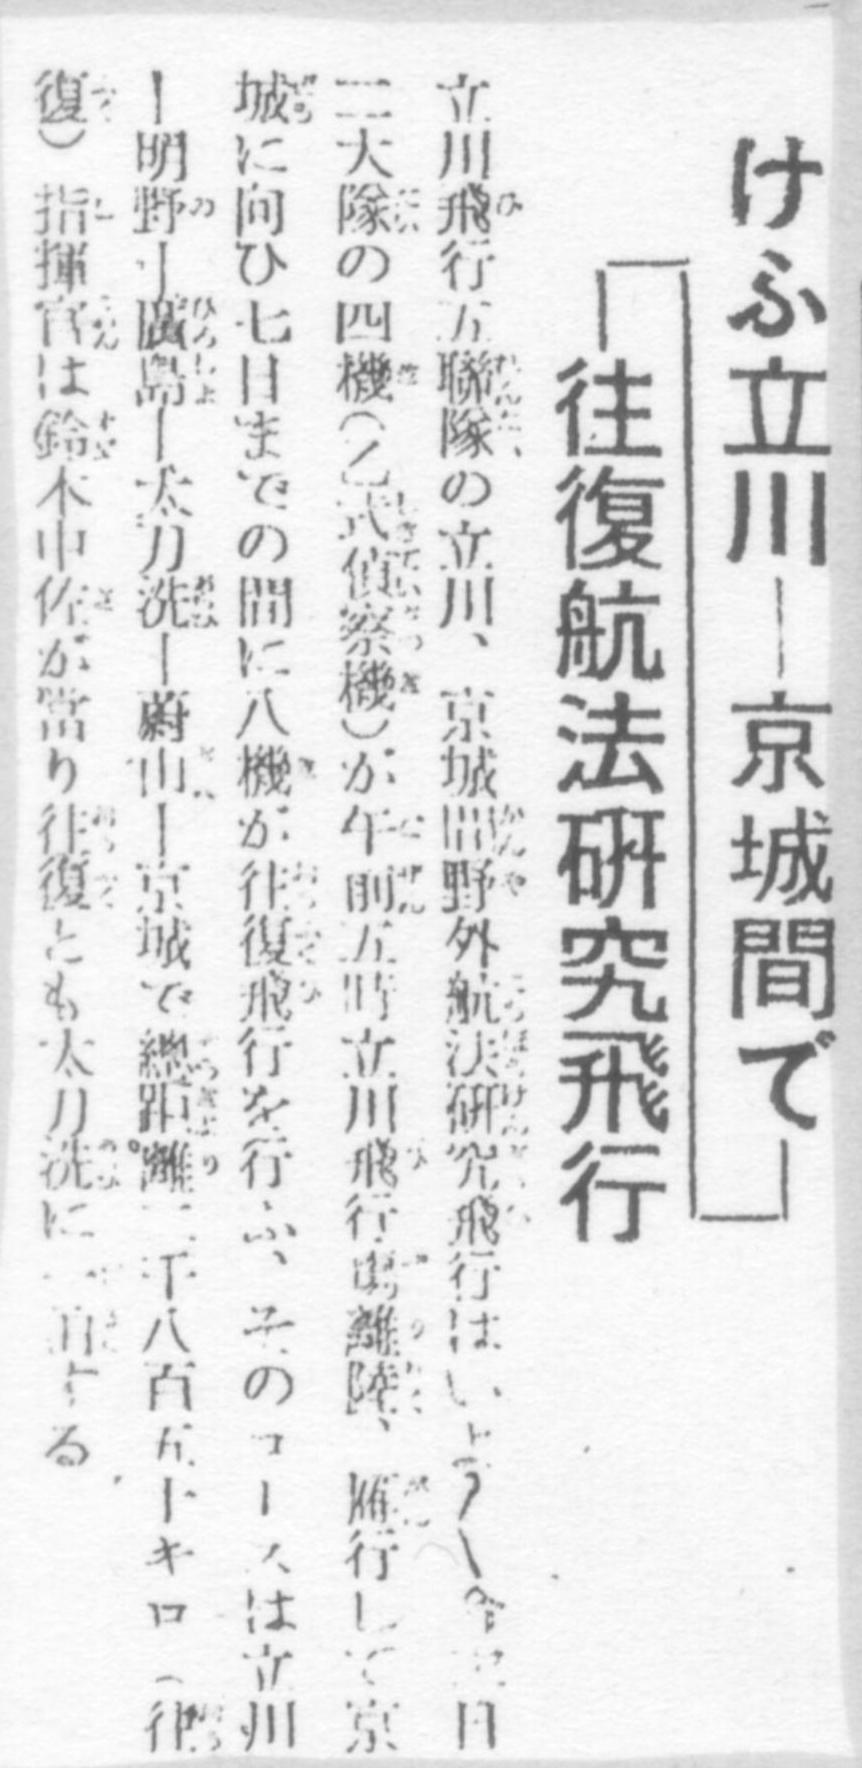 けふ立川―京城間で
往復航法研究飛行
立川飛行五聯隊の立川、京城間野外航法研究飛行はいよ〳〵今 日
二大隊の四機(乙式偵察機)が午前五時立川飛行場離陸、雁行して京
城に向ひ七日までの間に八機が往復飛行を行ふ、そのコースは立川
ー明野ー廣島ー太刀洗ー蔚山ー京城で總距離二千八百五十キロ(往
復)指揮官は鈴木中佐が當り往復とも太刀洗に一泊する